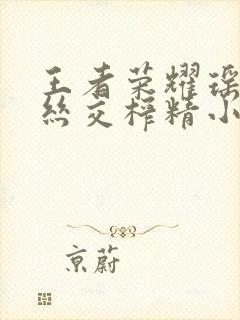 王者荣耀瑶
丝交榨精小
京蔚